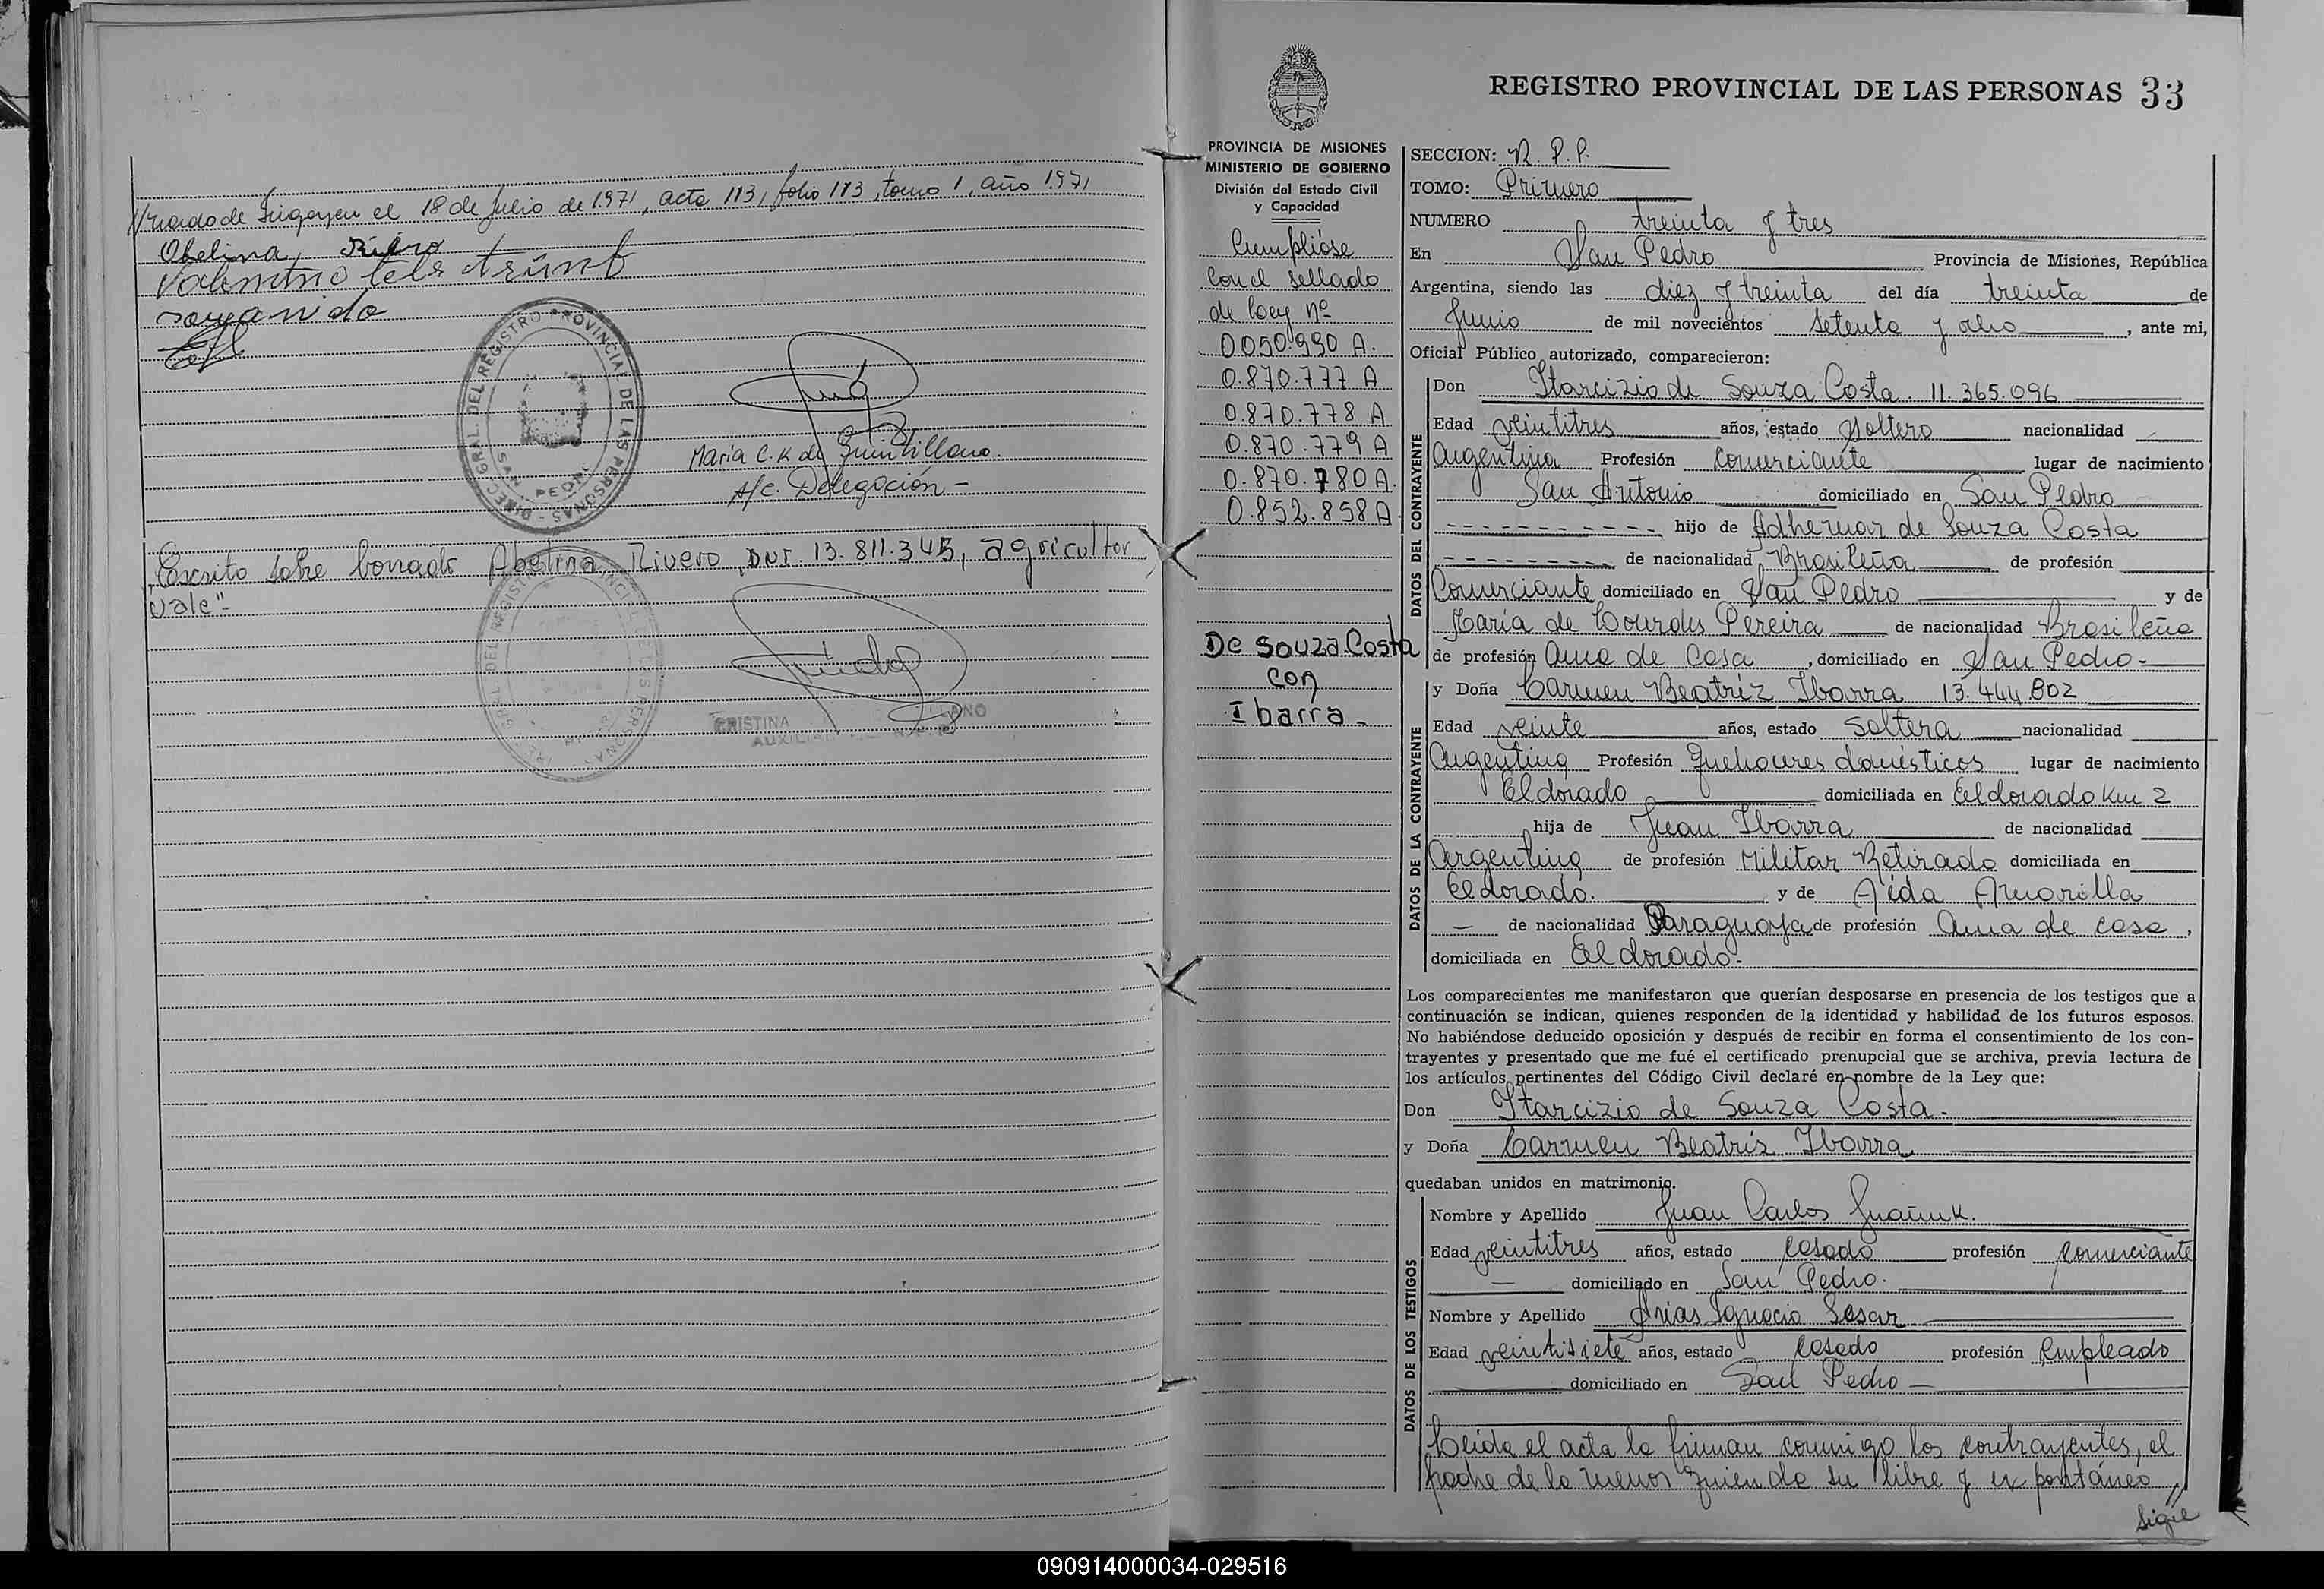 //nardo de Irigoyen el 18 de Julio de 1971, acta 113, folio 113, tomo 1, año 1971
Obelina Rivero
Valentino
A/c. Delegación -
María C. K de Quintillano.
DIREC. GRAL. DEL REGISTRO PROVINCIAL DE LAS PERSONAS
SAN PEDRO
"Escrito sobre borrado Abelina Rivero, DNI. 13.811.345, agricultor
vale"-
CRISTINA
REGISTRO PROVINCIAL DE LAS PERSONAS 33
PROVINCIA DE MISIONES
MINISTERIO DE GOBIERNO
División del Estado Civil
y Capacidad
Cumplióse
Con el sellado
de Ley nº
0050.990 A.
0.870.777 A
0.870.778 A
0.870.779 A
0.870.780 A.
0.852.858 A
De Souza Costa
con
Ibarra -
SECCION: R. P. P.
TOMO: Primero
NUMERO treinta y tres
En San Pedro Provincia de Misiones, República
Argentina, siendo las diez y treinta del día treinta de
Junio de mil novecientos setenta y ocho, ante mi,
Oficial Público autorizado, comparecieron:
DATOS DEL CONTRAYENTE
Don Itarcizio de Souza Costa. 11.365.096
Edad veintitres años, estado soltero nacionalidad
Argentina Profesión Comerciante lugar de nacimiento
San Antonio domiciliado en San Pedro
hijo de Adhemar de Souza Costa
de nacionalidad Brasileña de profesión
Comerciante domiciliado en San Pedro y de
María de Lourdes Pereira de nacionalidad Brasileña
de profesión Ama de Casa, domiciliado en San Pedro-
DATOS DE LA CONTRAYENTE
y Doña Carmen Beatríz Ibarra 13.444.802
Edad veinte años, estado soltera nacionalidad
Argentina Profesión Quehaceres domésticos lugar de nacimiento
Eldorado domiciliada en Eldorado Km 2
hija de Juan Ibarra de nacionalidad
Argentina de profesión Militar Retirado domiciliada en
Eldorado. y de Aída Amarilla
— de nacionalidad Paraguaya de profesión Ama de casa,
domiciliada en Eldorado-
Los comparecientes me manifestaron que querían desposarse en presencia de los testigos que a
continuación se indican, quienes responden de la identidad y habilidad de los futuros esposos.
No habiéndose deducido oposición y después de recibir en forma el consentimiento de los con-
trayentes y presentado que me fué el certificado prenupcial que se archiva, previa lectura de
los artículos pertinentes del Código Civil declaré en nombre de la Ley que:
Don Itarcizio de Souza Costa.
y Doña Carmen Beatrís Ibarra
quedaban unidos en matrimonio.
DATOS DE LOS TESTIGOS
Nombre y Apellido Juan Carlos
Edad veintitres años, estado casado profesión Comerciante
— domiciliado en San Pedro.
Nombre y Apellido Arias Ignacio Sesar
Edad veintisiete años, estado casado profesión Empleado
domiciliado en San Pedro —
Leída el acta la firman conmigo los contrayentes, el
padre de la menor quien da su libre y expontáneo //
sigue
090914000034-029516